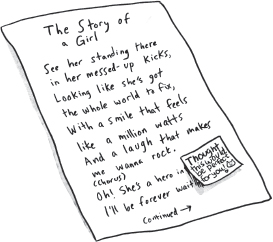 The Story of
a Girl
See her standing there
in her messed-up kicks,
Looking like she's got
the whole world to fix,
With a smile that feels
like a million watts
And a laugh that makes
me wanna rock.
(Chorus)
Oh! She's a hero in
I'll be forever wait
continued →
Thought
this would
be perfect
for you!